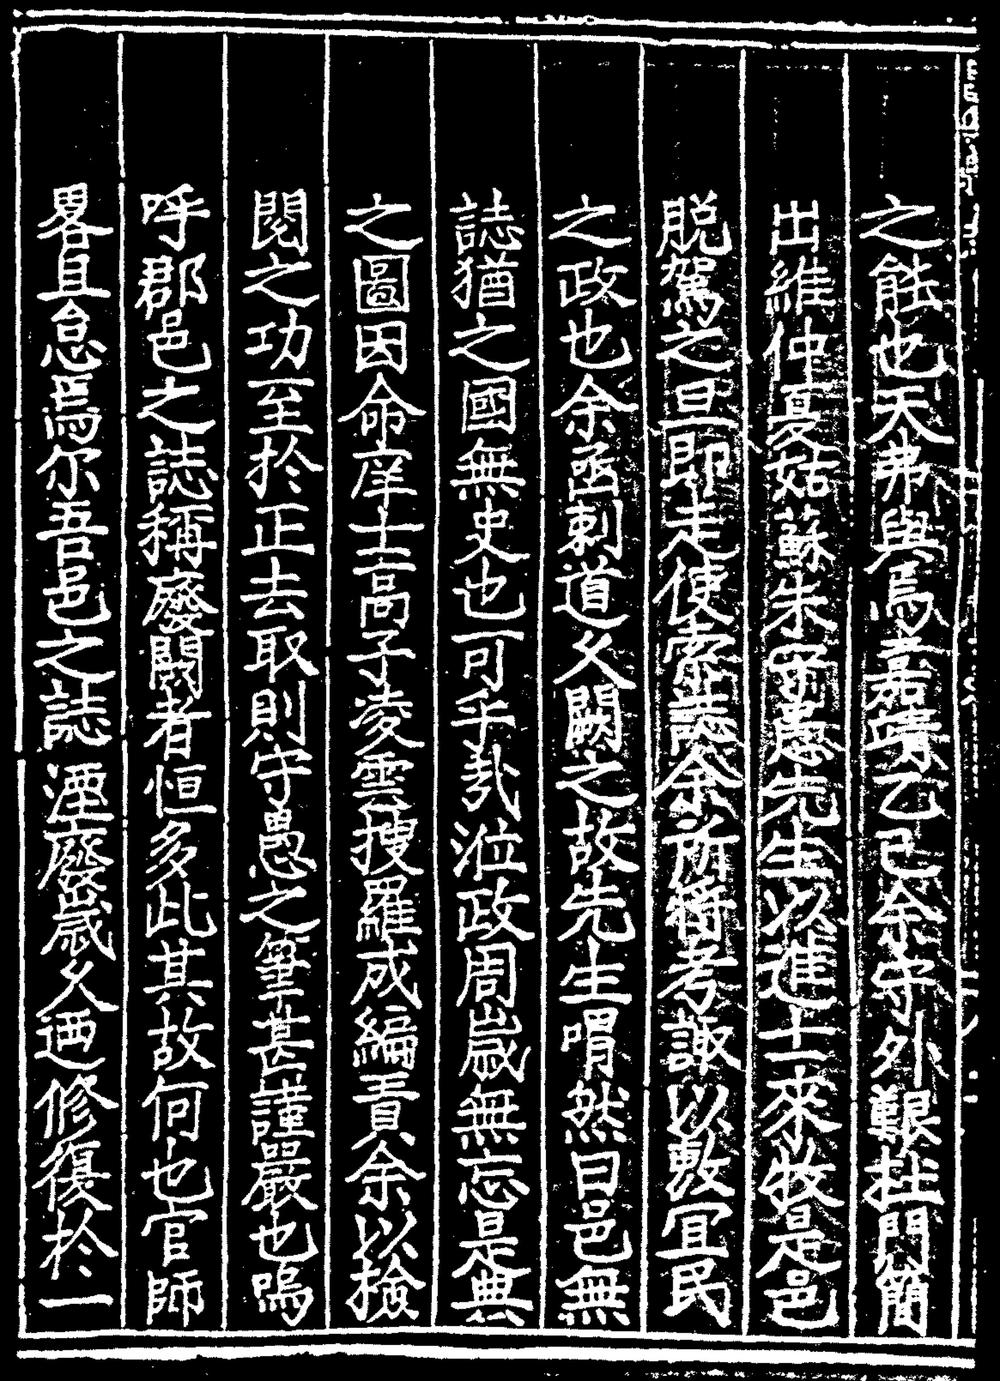 之能也天弗與焉嘉靖乙巳余守外艱拄門簡
出維仲夏姑蘇朱守愚先生以進士來牧是邑
脫駕之旦即走使索誌余所將考諏以敷宜民
之政也余亟剌道久闕之故先生喟然曰邑無
誌猶之國無史也可乎哉涖政周歲無忘是典
之圖因命庠士高子凌雲搜羅成編責余以檢
閱之功至於正去取則守愚之筆甚謹嚴也嗚
呼郡邑之誌稱廢闕者恒多此其故何也官師
畧且怠焉尔吾邑之誌湮廢歲久迺修復於一